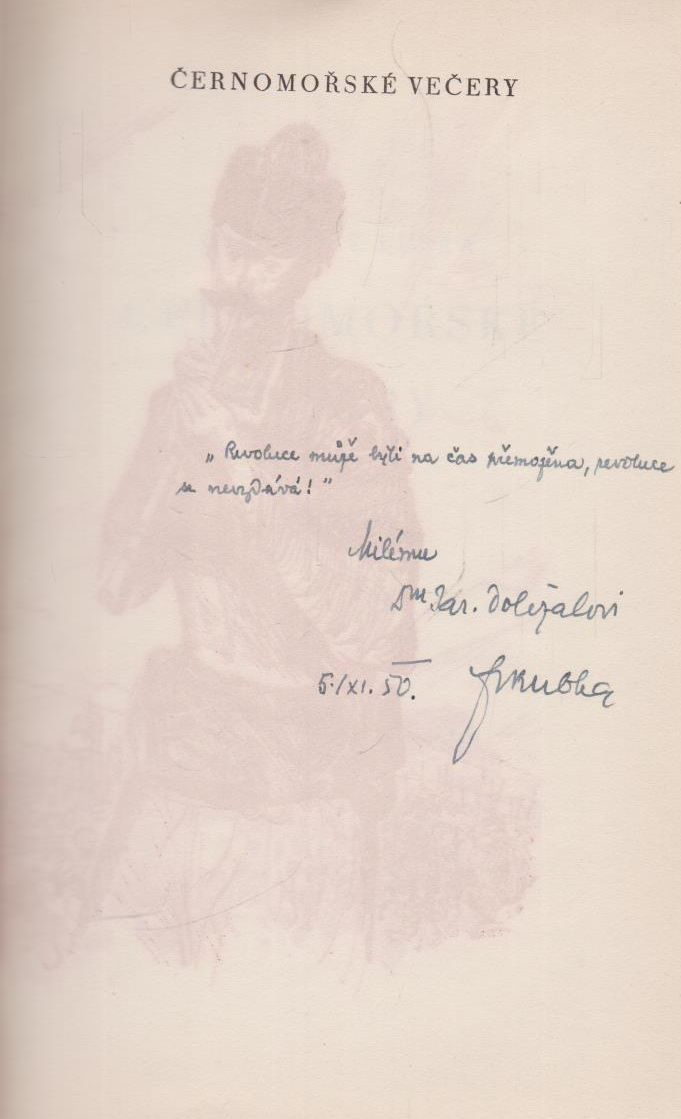 ČERNOMOŘSKÉ VEČERY
„Revoluce může býti na čas přemožena, revoluce
se nevzdává!"
Milému
Jar. Doležalovi
5./XI. 50. Frkubka